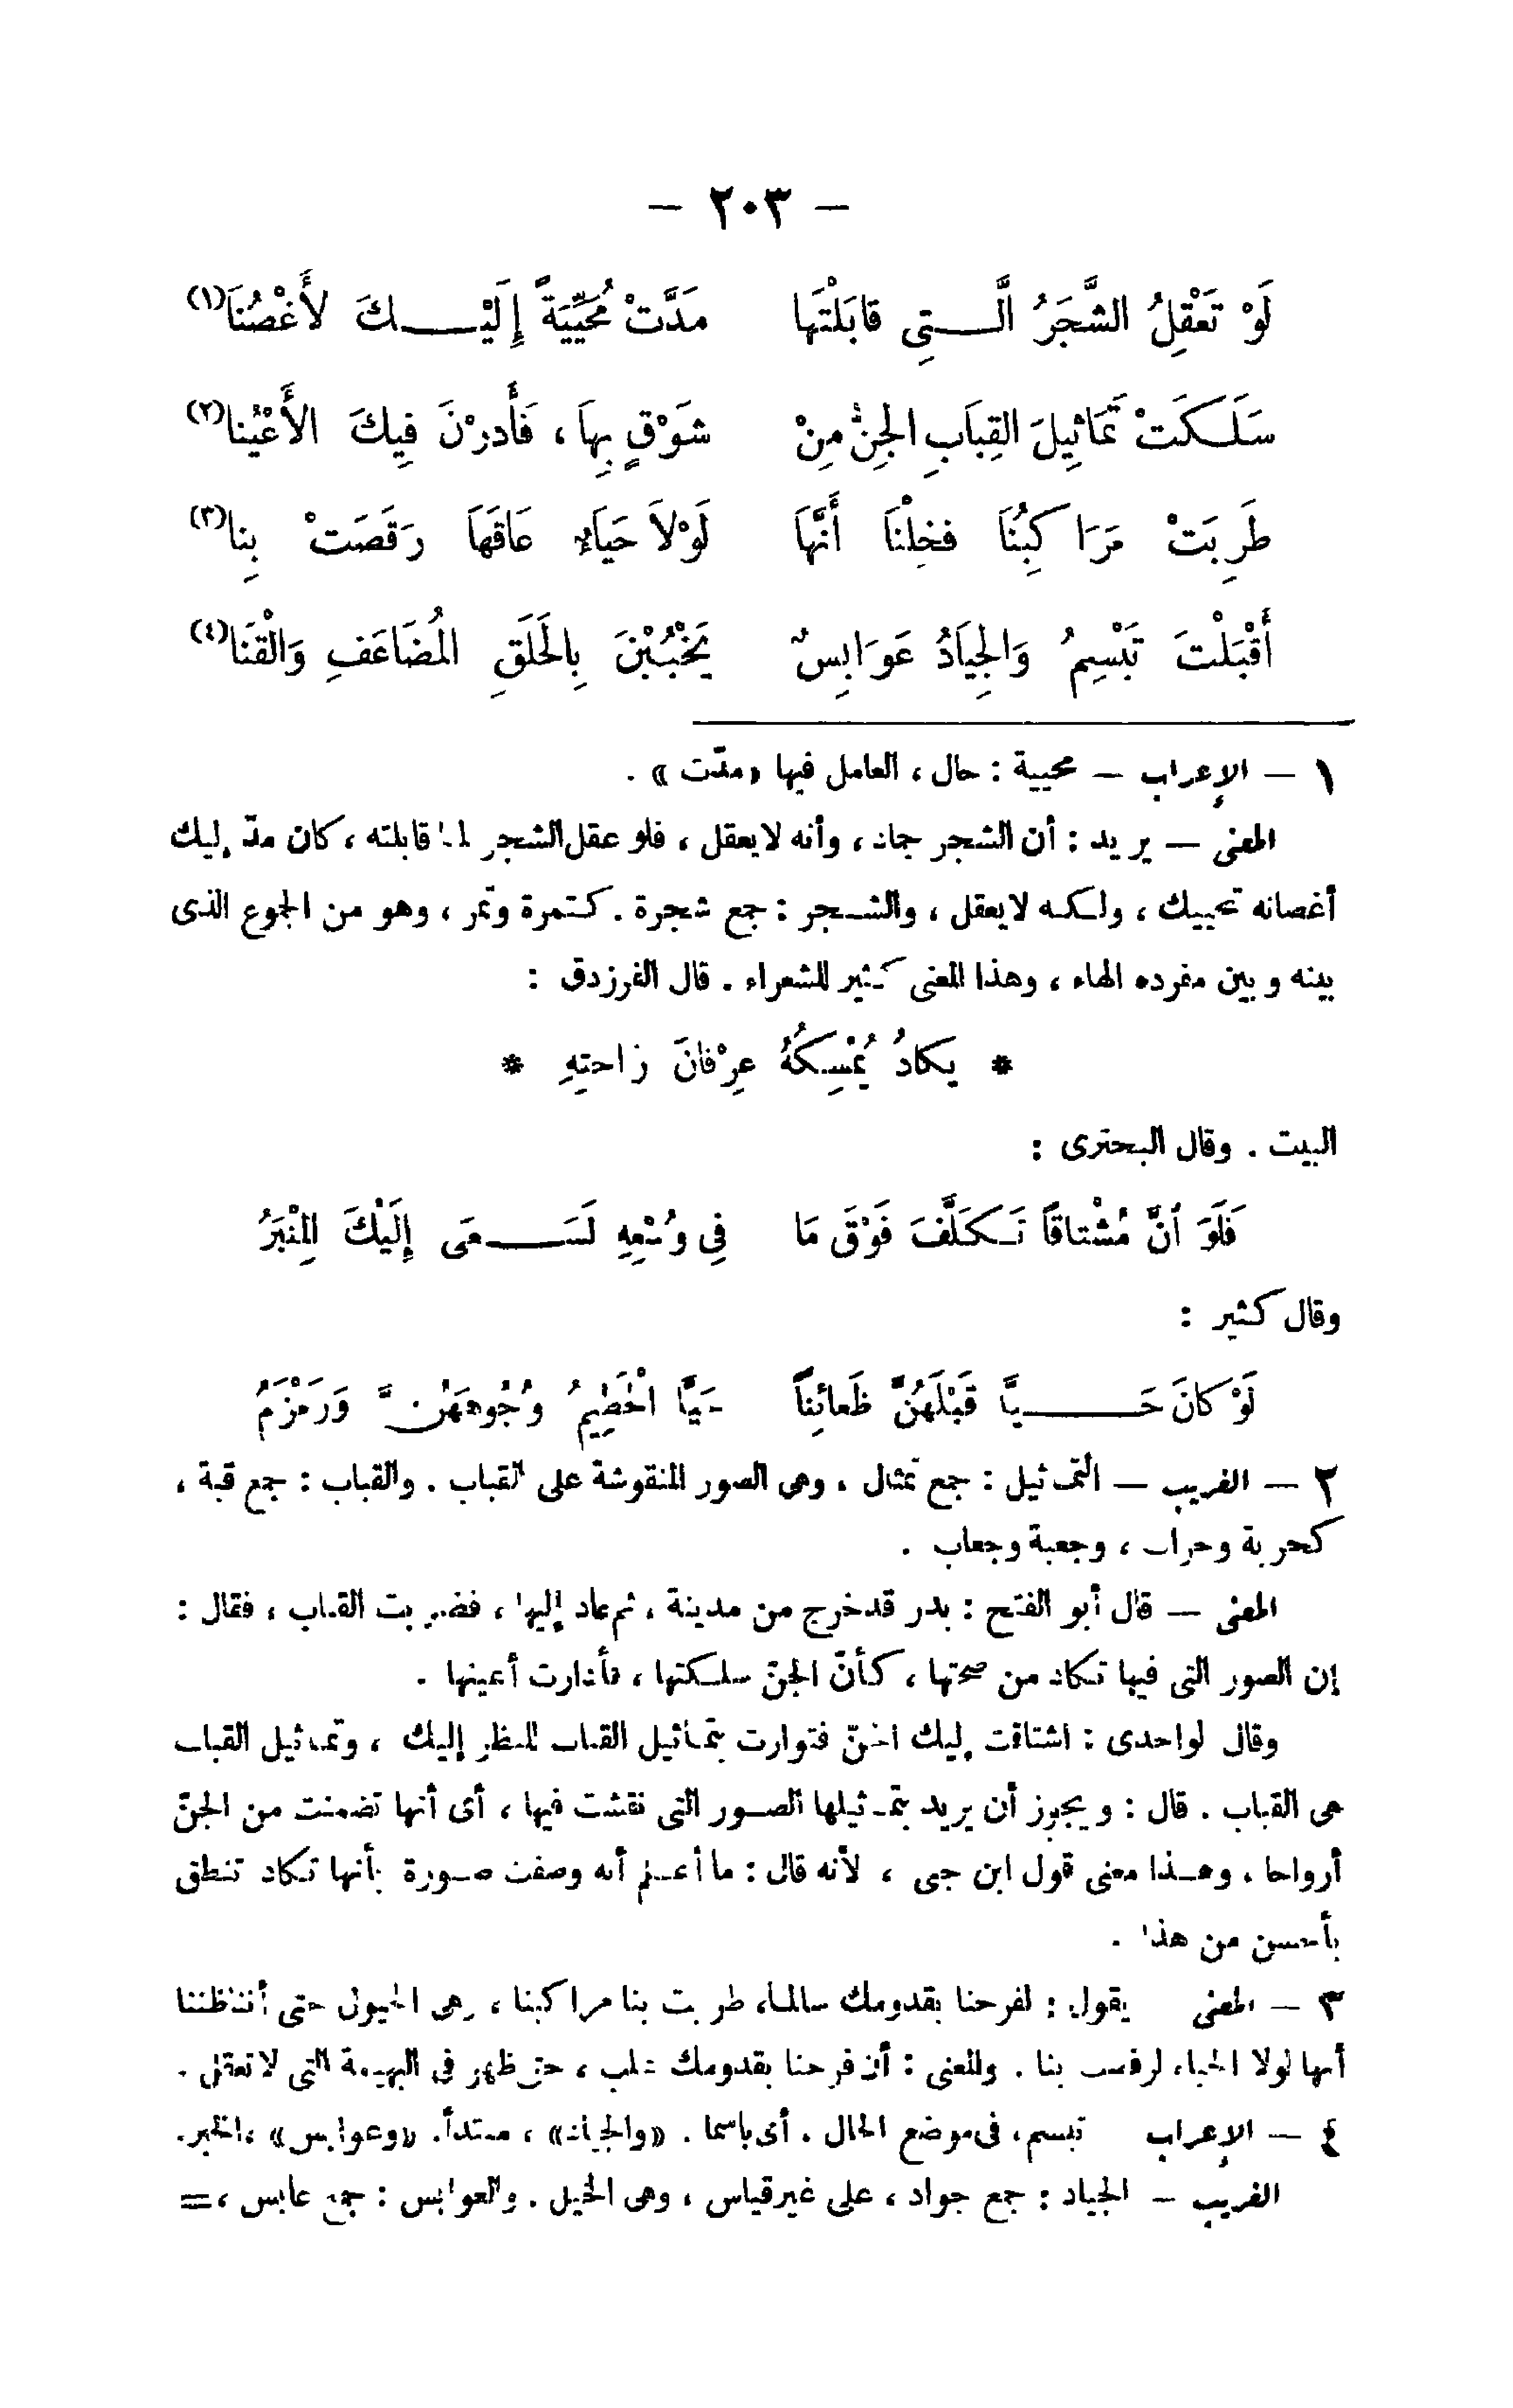 — ٢٠٣ —
لَوْ تَعْقِلُ الشَّجَرُ الَّتِى قابَلْتَها مَدَّتْ مُحَيِّيَةً إِلَيْكَ لأَغْصُنَا(١)
سَلَكَتْ تَمَاثِيلَ القِبَابِ الجِنُّ مِنْ شَوْقٍ بِهاَ، فَأَدرْنَ فِيكَ الأَعْيُنا(٢)
طَرِبَتْ مَرَاكِبُنَا فخلْنَا أَنَّهاَ لَوْلاَ حَيَاءٌ عَاقَهَا رَقَصَتْ بِنا(٣)
أَقْبَلْتَ تَبْسِمُ وَالجِيَادُ عَوَابِسٌ يَخْبُبْنَ بِالحَلَقِ المُضَاعَفِ وَالْقنَا(٤)
١ — الإعراب — محيية : حال ، العامل فيها «مدّت» .
المعنى — يريد : أن الشجر جماد ، وأنه لايعقل ، فلو عقل الشجر لما قابلته ، كان مدّ إليك
أغصانه تحييك ، ولكنه لايعقل ، والشجر : جمع شجرة . كتمرة وتمر ، وهو من الجوع الذى
بينه وبين مفرده الهاء ، وهذا المعنى كثير للشعراء . قال الفرزدق :
* يكادُ يُمْسِكُهُ عِرْفانَ راحتِهِ *
البيت . وقال البحترى :
فَلَوَ أنَّ مُشْتاقاً تَكَلَّفَ فَوْقَ مَا فِى وُسْعِهِ لَسَعَى إِلَيْكَ المِنْبَرُ
وقال كثير :
لَوْ كانَ حَيًّا قَبْلَهُنَّ ظَعائِناً حَيَّا الْخَطِيمُ وُجُوهَهُنَّ وَزَمْزَمُ
٢ — الغريب — التماثيل : جمع تمثال ، وهى الصور المنقوشة على القباب . والقباب : جمع قبة ،
كحربة وحراب ، وجعبة وجعاب .
المعنى — قال أبو الفتح : بدر قدخرج من مدينة ، ثم عاد إليها ، فضربت القباب ، فقال :
إن الصور التى فيها تكاد من صحتها ، كأنّ الجنّ سلكتها ، فأدارت أعينها .
وقال الواحدى : اشتاقت إليك الجنّ فتوارت بتماثيل القباب للنظر إليك ، وتماثيل القباب
هى القباب . قال : ويجوز أن يريد بتماثيلها الصور التى نقشت فيها ، أى أنها تضمنت من الجنّ
أرواحا ، وهذا معنى قول ابن جنى ، لأنه قال : ما أعلم أنه وصفت صورة بأنها تكاد تنطق
بأحسن من هذا .
٣ — المعنى يقول : لفرحنا بقدومك سالما، طربت بنا مراكبنا ، وهى الخيول حتى أننا ظننا
أنها لولا الحياء لرقصت بنا . والمعنى : أن فرحنا بقدومك غلب ، حتى ظهر فى البهيمة التى لاتعقل .
٤ — الإعراب تبسم، فى موضع الحال . أى باسما . «والجياد» ، مبتدأ. «وعوابس» ،الخبر.
الغريب — الجياد : جمع جواد ، على غيرقياس ، وهى الخيل . والعوابس : جمع عابس ،=